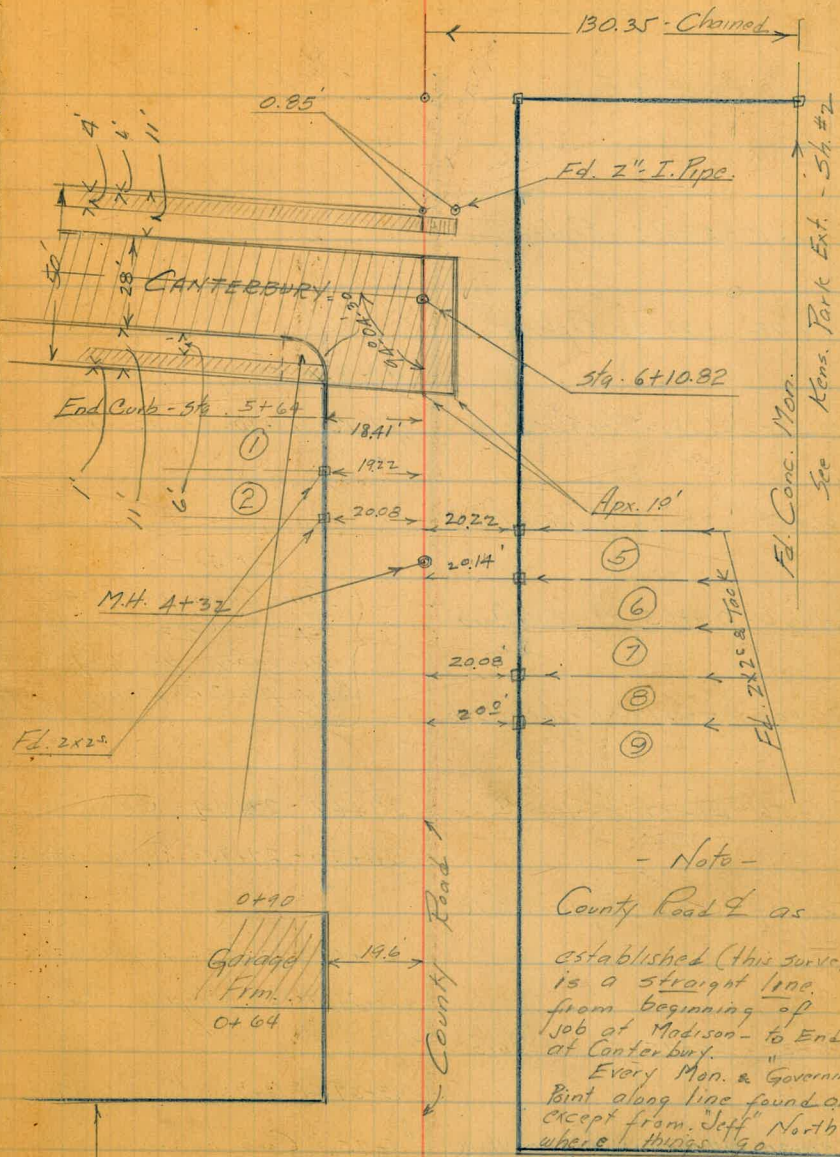 130.35 - Chained
0.85'
Fd. 2"- I. Pipe.
4'
6'
11'
50'
28'
CANTERBURY
Sta. 6+10.82
End Curb - Sta. 5+64
18.41'
①
19.22
②
20.08
20.22
20.14'
Apx. 10'
1'
11'
6'
⑤
⑥
⑦
⑧
⑨
M.H. 4+32
20.08'
20.0'
Fd. 2x2s.
Fd. 2x2s & Tack
Fd. Conc. Mon.
See Kens. Park Ext. - Sh. #2
0+90
Garage
Frm.
0+64
19.6'
County Road
- Note -
County Road ℄ as
established (this surve
is a straight line
from beginning of
job at Madison - to End
at Canterbury.
Every Mon. & Governi
Point along line found o
except from "Jeff" North
where things go